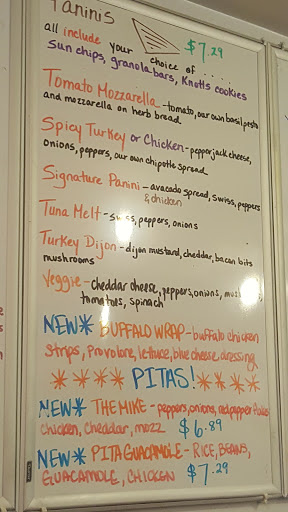 Paninis
all include your choice of ..... $7.29
Sun chips, granola bars, Knotts cookies
Tomato Mozzarella - tomato, our own basil pesto
and mozzarella on herb bread
Spicy Turkey or Chicken - pepperjack cheese,
onions, peppers, our own chipotle spread
Signature Panini - avocado spread, swiss, peppers
& chicken
Tuna Melt - swiss, peppers, onions
Turkey Dijon - dijon mustard, cheddar, bacon bits
mushrooms
Veggie - cheddar cheese, peppers, onions,
tomatoes, spinach
NEW* BUFFALO WRAP - buffalo chicken
strips, Provolone, lettuce, blue cheese dressing
**** PITAS! ****
NEW* THE MIKE - peppers, onions, red pepper flakes
chicken, cheddar, mozz $6.89
NEW* PITA GUACAMOLE - RICE, BEANS,
GUACAMOLE, CHICKEN $7.29